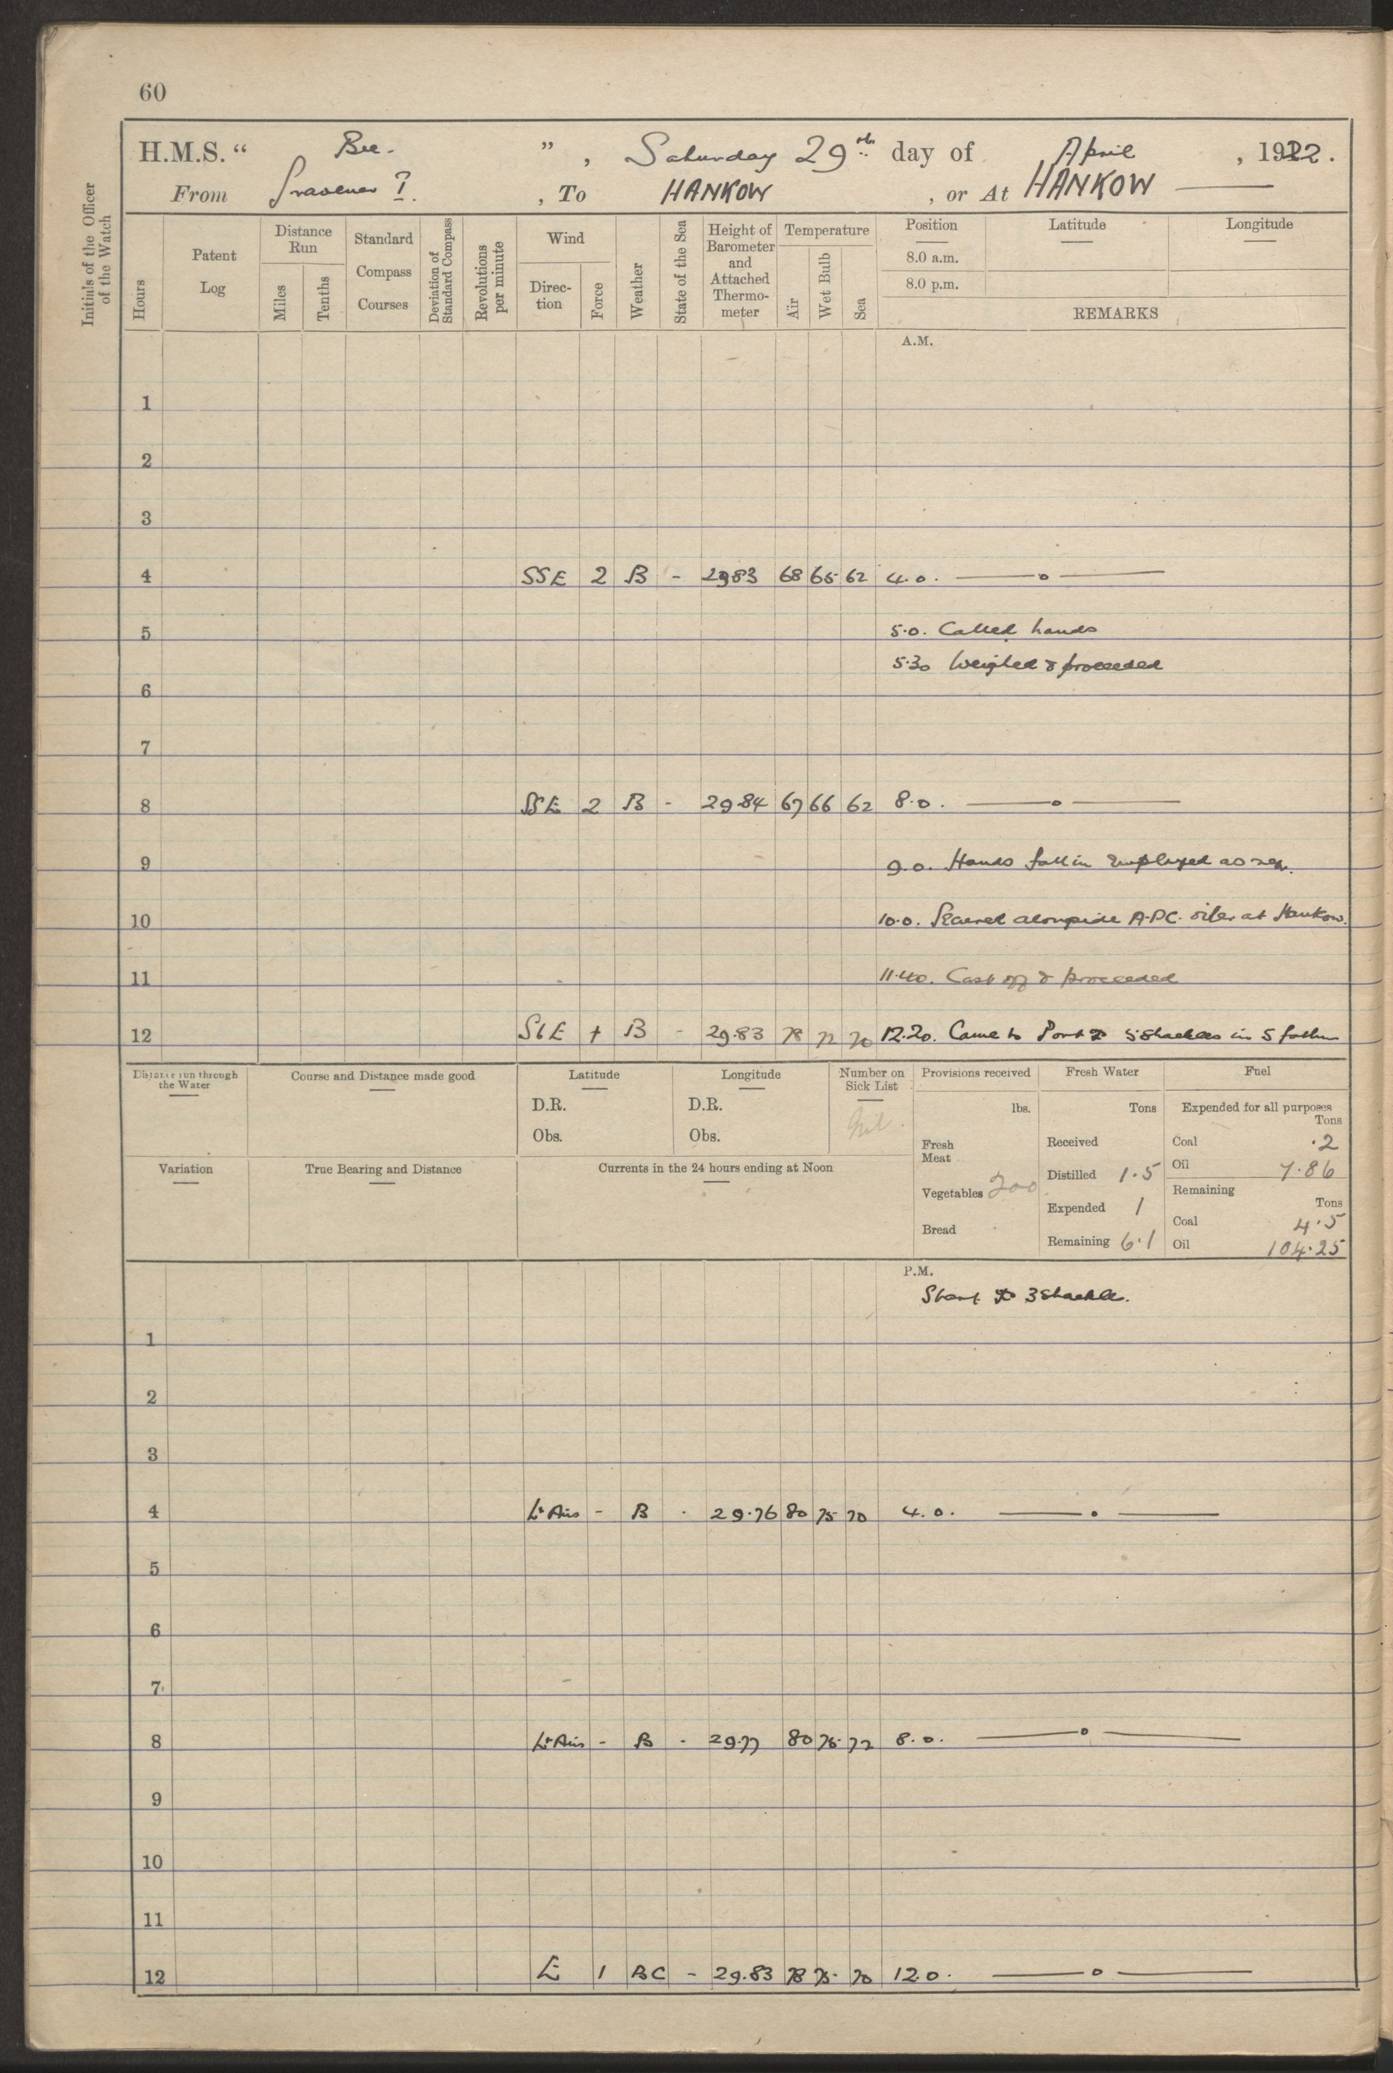 60
H.M.S. " Bee. ", Saturday 29th day of April, 1922.
From Gravener I., To HANKOW, or At HANKOW
Initials of the Officer of the Watch
Hours
Patent Log
Distance Run
Miles
Tenths
Standard Compass Courses
Deviation of Standard Compass
Revolutions per minute
Wind
Direction
Force
Weather
State of the Sea
Height of Barometer and Attached Thermometer
Temperature
Air
Wet Bulb
Sea
Position
8.0 a.m.
8.0 p.m.
Latitude
Longitude
REMARKS
A.M.
1
2
3
4 SSE 2 B - 2983 68 65 62 4.0. —o—
5 5.0. Called hands
5.30 Weighed & proceeded
6
7
8 SSE 2 B - 29.84 67 66 62 8.0. —o—
9 9.0. Hands fall in employed as req.
10 10.0. Secured alongside A.P.C. oiler at Hankow.
11 11.40. Cast off & proceeded
12 B - 29.83 78 72 70 12.20. Came to Port 5 Shackles in 5 fathms
Distance run through the Water
Course and Distance made good
Latitude
D.R.
Obs.
Longitude
D.R.
Obs.
Number on Sick List
Nil.
Provisions received
lbs.
Fresh Meat
Vegetables 200
Bread
Fresh Water
Tons
Received
Distilled 1.5
Expended 1
Remaining 6.1
Fuel
Expended for all purposes
Tons
Coal .2
Oil 7.86
Remaining
Tons
Coal 4.5
Oil 104.25
Variation
True Bearing and Distance
Currents in the 24 hours ending at Noon
P.M.
3 shackle.
1
2
3
4 Lt Airs - B - 29.76 80 75 70 4.0. —o—
5
6
7
8 Lt Airs - B - 29.77 80 75 72 8.0. —o—
9
10
11
12 E 1 BC - 29.83 78 75 70 12.0. —o—